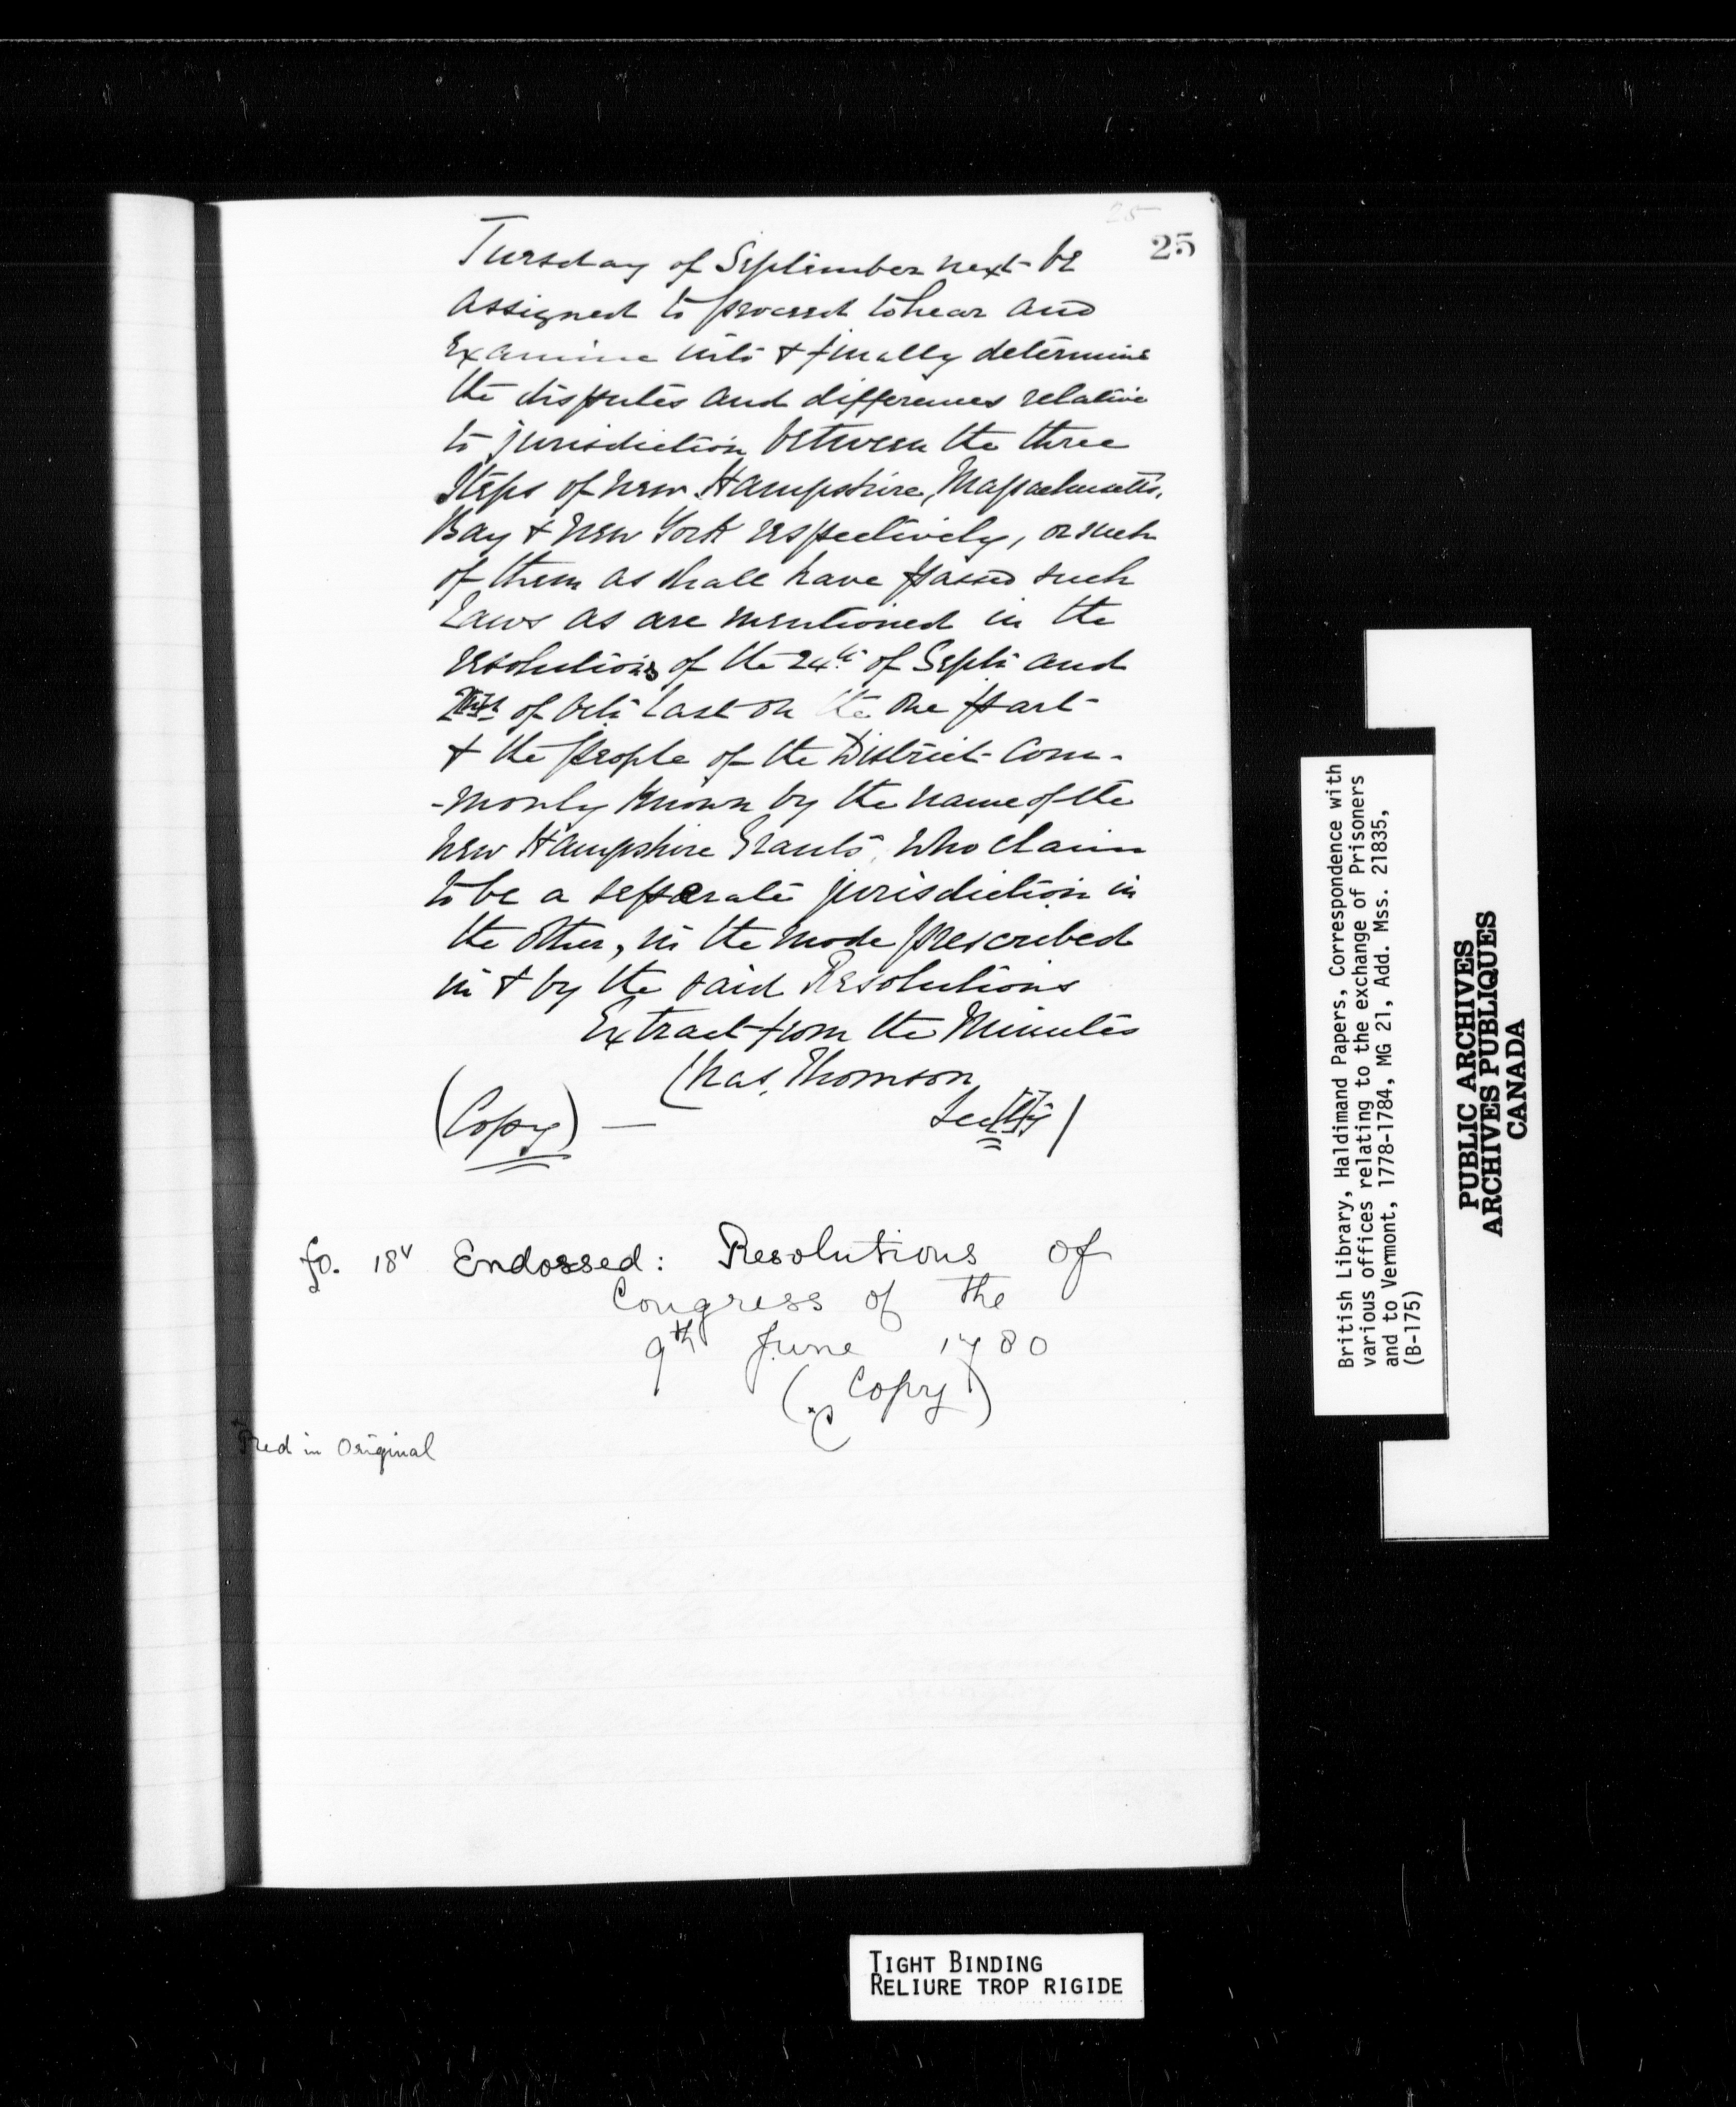 25
25
Tuesday of September next be
assigned to proceed to hear and
Examine into & finally determine
the disputes and differences relative
to jurisdiction between the three
Steps of New Hampshire, Massachusetts.
Bay & New York respectively, or such
of them as shall have passed such
Laws as are mentioned in the
resolutions of the 24th of Septr and
of Octr Last on the One part
& the people of the District Com-
-monly known by the name of the
New Hampshire Grants, Who claim
to be a seperate jurisdiction in
the Other, in the mode prescribed
in & by the said Resolutions
Extract from the Minutes
Chas. Thomson
(Copy) — Secrty /
fo. 18v Endossed: Resolutions of
Congress of the
9th June 1780
(Copy)
C
in Original
British Library, Haldimand Papers, Correspondence with
various offices relating to the exchange of Prisoners
and to Vermont, 1778-1784, MG 21, Add. Mss. 21835,
(B-175)
PUBLIC ARCHIVES
ARCHIVES PUBLIQUES
CANADA
TIGHT BINDING
RELIURE TROP RIGIDE